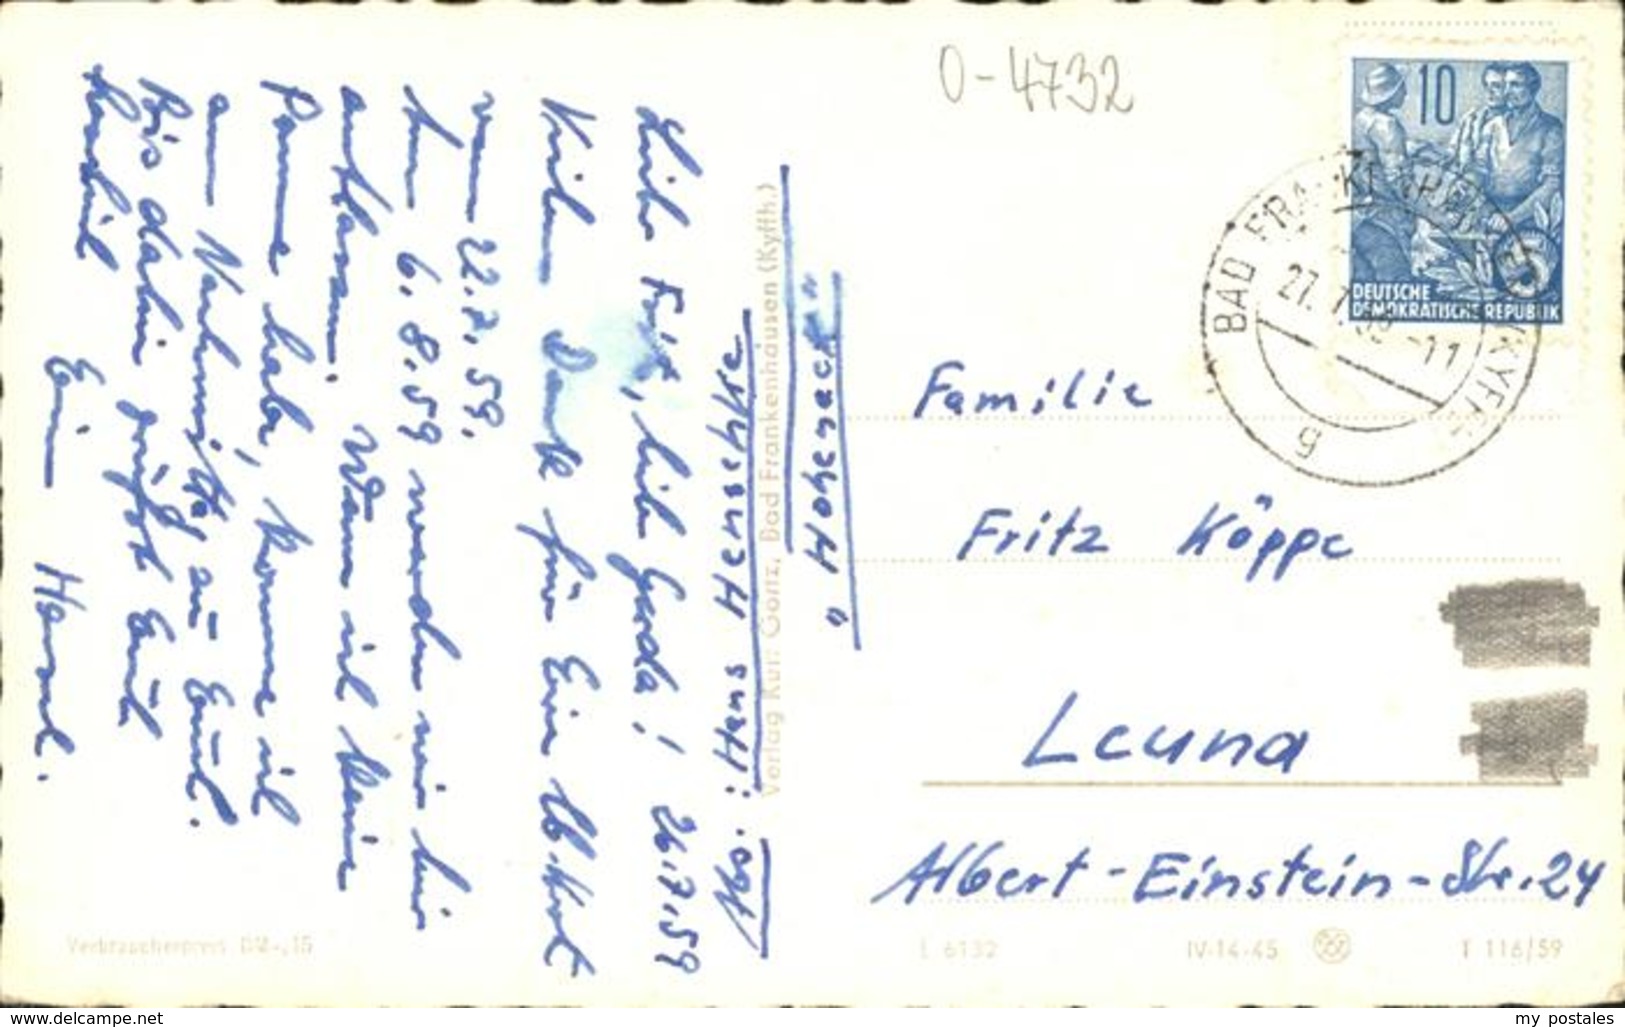 O-4732
10
DEUTSCHE
DEMOKRATISCHE REPUBLIK
BAD FRANKENHAUSEN KYFFH.
27. 7. 59 -11
g
Familie
Fritz Köppe
Leuna
Albert-Einstein-Str. 24
Abs.: Hans Hentschke
"Hoheneck"
Verlag Kurt Goritz, Bad Frankenhausen (Kyffh.)
Liebe Fritz, liebe Gerda! 26.7.59
Vielen Dank für Eure Ub. Kart
vom 22.7.59.
Am 6.8.59 werden wir hier
entlassen. Wenn ich keine
Panne habe, komme ich
am Nachmittag zu Euch.
Bis dahin grüßt Euch
herzlich
Euer Hans.
Verbraucherpreis DM -,15
L 6132
IV-14-45
T 116/59
www.delcampe.net
my postales